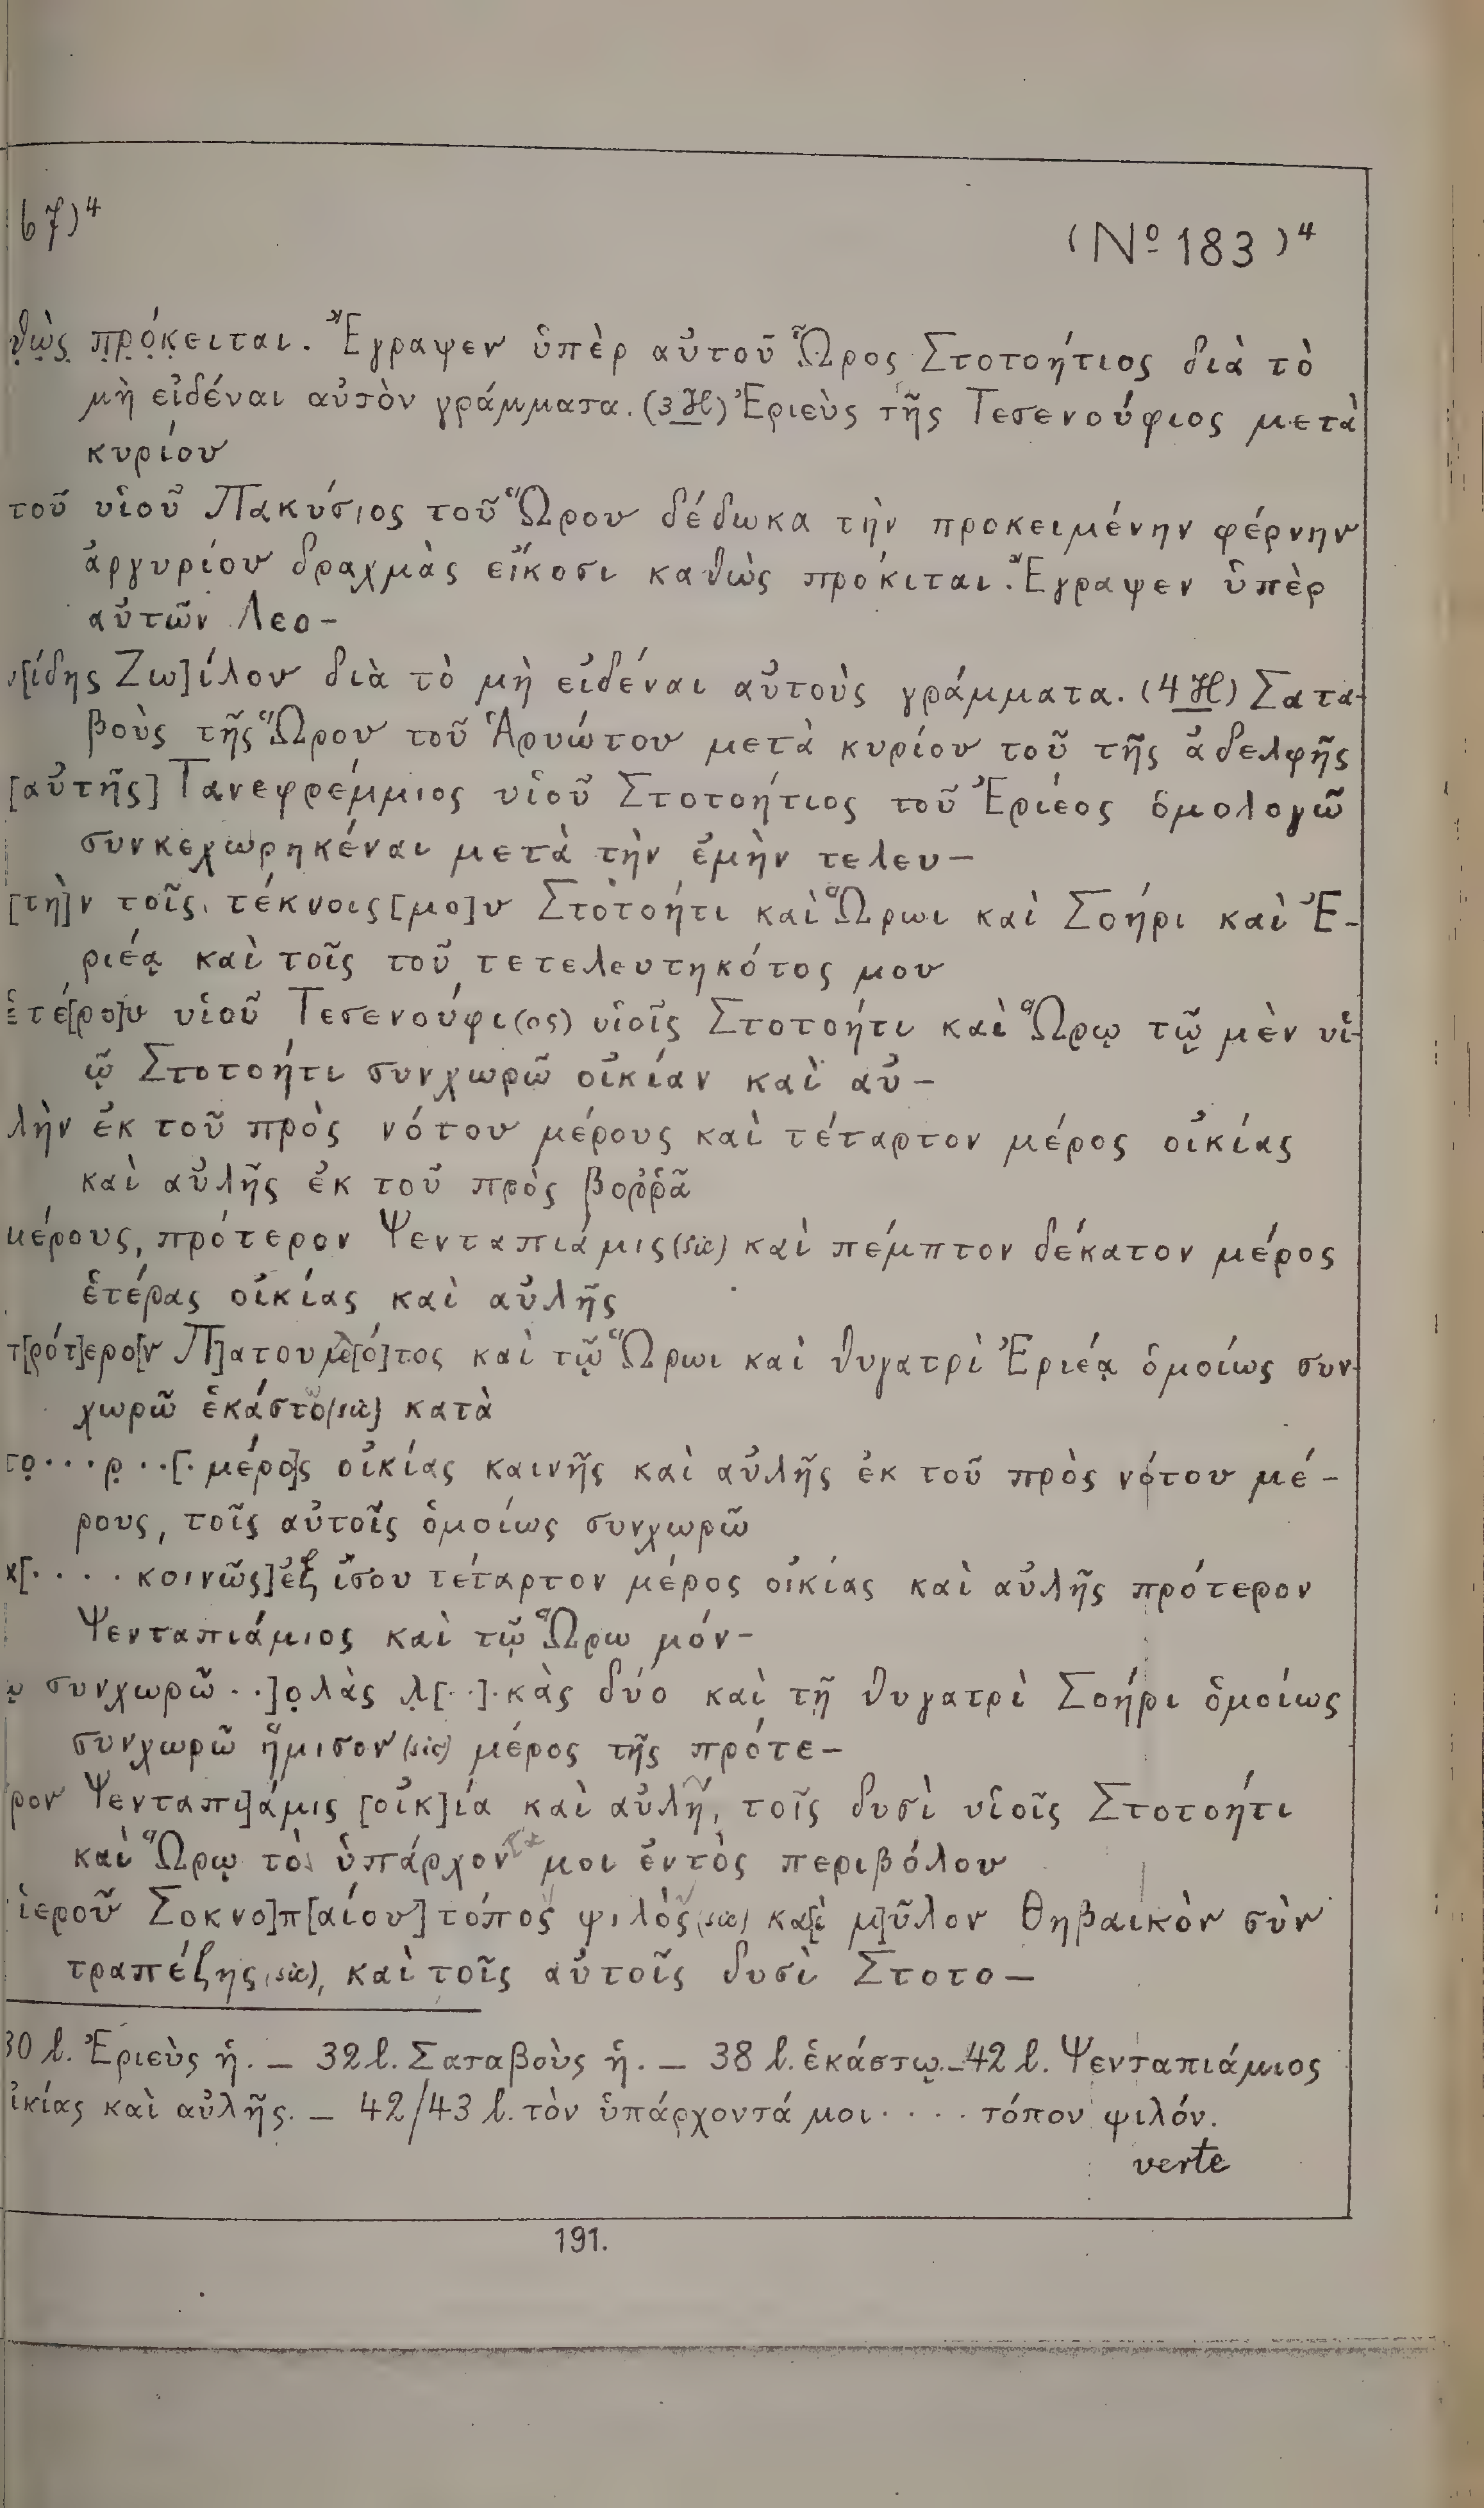 67)⁴ (Nº 183)⁴
θὼ̣ς̣ π̣ρ̣ό̣κ̣ειται. Ἔγραψεν ὑπὲρ αὐτοῦ Ὧρος Στοτοήτιος διὰ τὸ
μὴ εἰδέναι αὐτὸν γράμματα. (3 H) Ἐριεὺς τῆς Τεσενούφιος μετὰ
κυρίου
τοῦ υἱοῦ Πακύσιος τοῦ Ὥρου δέδωκα τὴν προκειμένην φέρνην
ἀργυρίου δραχμὰς εἴκοσι καθὼς πρόκιται. Ἔγραψεν ὑπὲρ
αὐτῶν Λεο-
ν[ίδης Ζω]ίλου διὰ τὸ μὴ εἰδέναι αὐτοὺς γράμματα. (4 H) Σατα-
βοὺς τῆς Ὥρου τοῦ Ἁρυώτου μετὰ κυρίου τοῦ τῆς ἀδελφῆς
[αὐτῆς] Τανεφρέμμιος υἱοῦ Στοτοήτιος τοῦ Ἐριέος ὁμολογῶ
συνκεχωρηκέναι μετὰ τὴν ἐμὴν τελευ-
[τὴ]ν τοῖς τέκνοις [μο]υ Στοτοήτι καὶ Ὥρωι καὶ Σοήρι καὶ Ἐ-
ριέᾳ καὶ τοῖς τοῦ τετελευτηκότος μου
ἑτέ[ρο]υ υἱοῦ Τεσενούφι(ος) υἱοῖς Στοτοήτι καὶ Ὥρῳ τῷ μὲν υἱ-
ῷ Στοτοήτι συνχωρῶ οἰκίαν καὶ αὐ-
λὴν ἐκ τοῦ πρὸς νότου μέρους καὶ τέταρτον μέρος οἰκίας
καὶ αὐλῆς ἐκ τοῦ πρὸς βοῤῥᾶ
μέρους, πρότερον Ψενταπιάμις (sic) καὶ πέμπτον δέκατον μέρος
ἑτέρας οἰκίας καὶ αὐλῆς
π[ρότ]ερο[ν Π]ατουμ[ό]τος καὶ τῷ Ὥρωι καὶ θυγατρὶ Ἐριέᾳ ὁμοίως συν-
χωρῶ ἑκάστο (sic) κατὰ
το̣···ρ̣··[· μέρο]ς οἰκίας καινῆς καὶ αὐλῆς ἐκ τοῦ πρὸς νότου μέ-
ρους, τοῖς αὐτοῖς ὁμοίως συνχωρῶ
κ[···· κοινῶς] ἐξ ἴσου τέταρτον μέρος οἰκίας καὶ αὐλῆς πρότερον
Ψενταπιάμιος καὶ τῷ Ὥρω μόν-
ῳ συνχωρῶ ··]ο̣λὰς λ̣[··]·κὰς δύο καὶ τῇ θυγατρὶ Σοήρι ὁμοίως
συνχωρῶ ἥμισον (sic) μέρος τῆς πρότε-
ρον Ψενταπι]άμις [οἰκ]ία καὶ αὐλή, τοῖς δυσὶ υἱοῖς Στοτοήτι
καὶ Ὥρῳ τὸ ὑπάρχον μοι ἐντὸς περιβόλου
ἱεροῦ Σοκνο]π[αίου] τόπος ψιλὸς (sic) κα[ὶ μ]ῦλον Θηβαικὸν σὺν
τραπέζης (sic), καὶ τοῖς αὐτοῖς δυσὶ Στοτο-
30 l. Ἐριεὺς ἡ. — 32 l. Σαταβοὺς ἡ. — 38 l. ἑκάστῳ. — 42 l. Ψενταπιάμιος
οἰκίας καὶ αὐλῆς. — 42/43 l. τὸν ὑπάρχοντά μοι ···· τόπον ψιλόν.
verte
191.